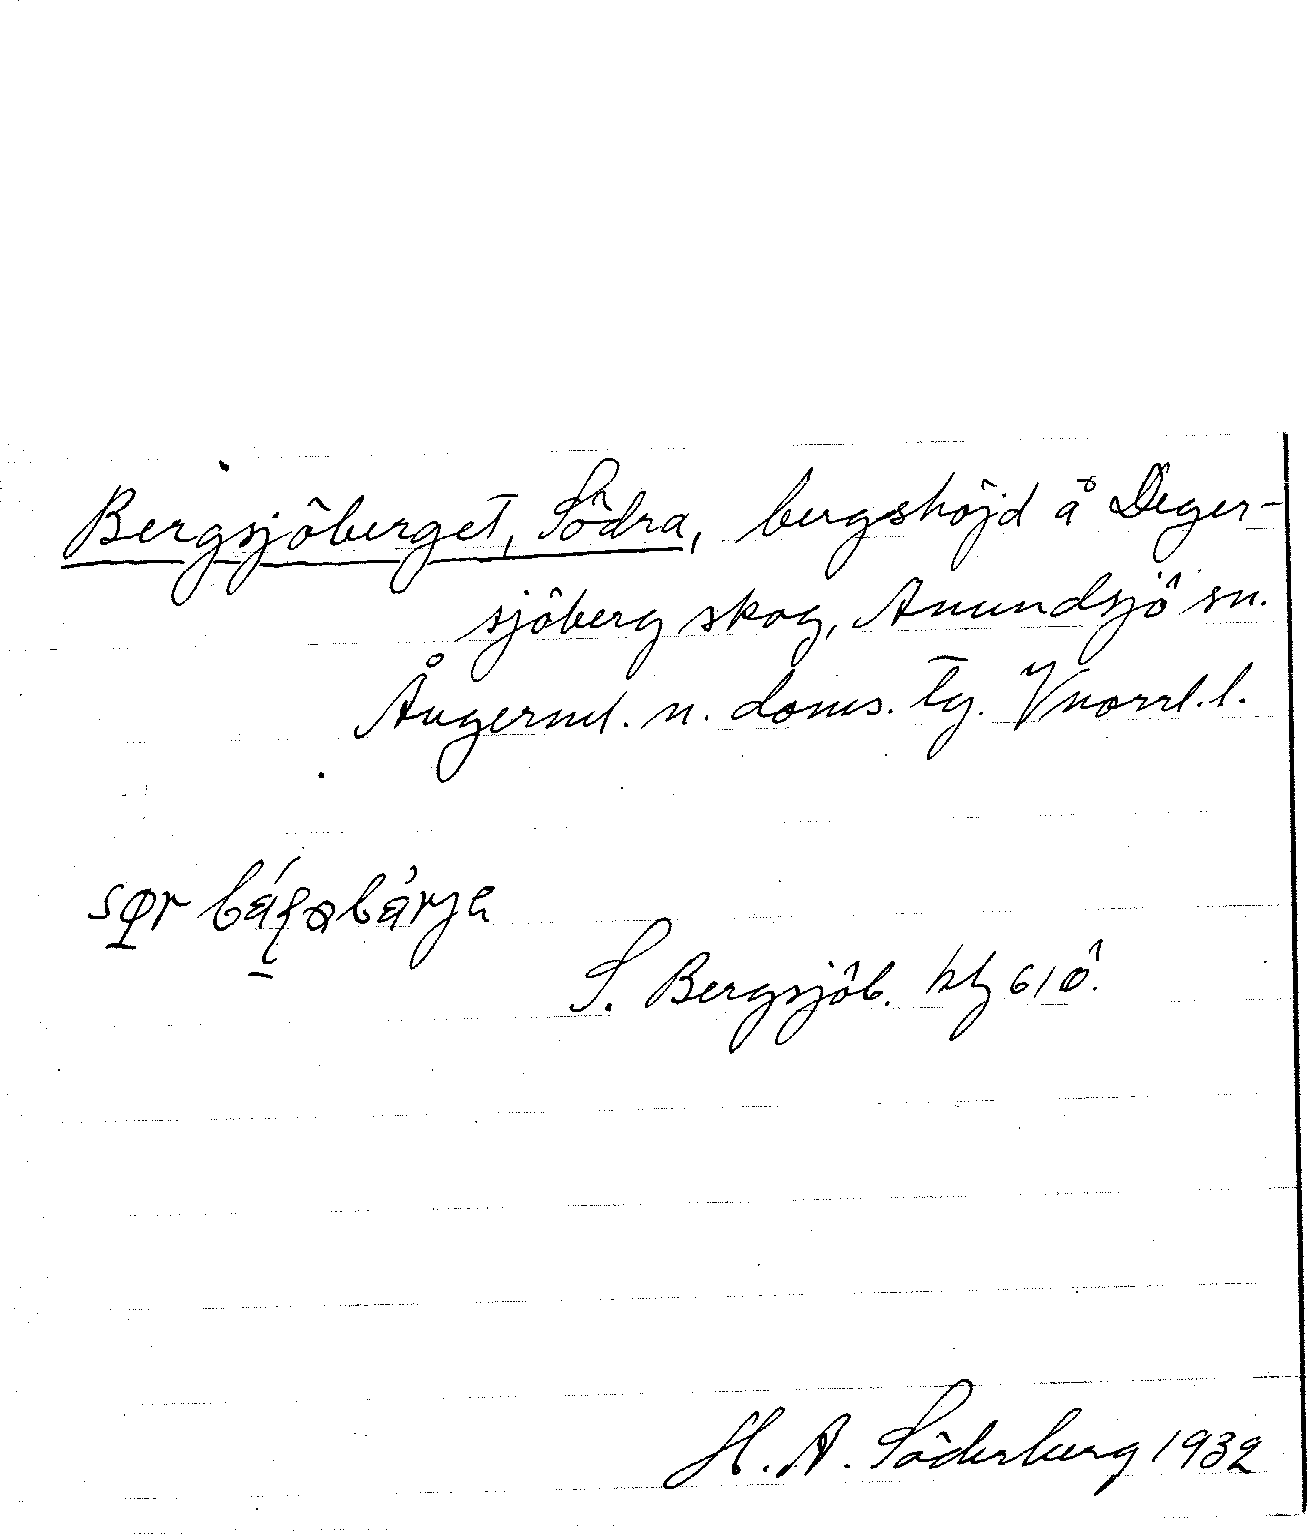 Bergsjöberget, Södra, bergshöjd å Deger-
sjöberg skog, Anundsjö sn.
Ångerml. n. doms. tg. Vnorrl. l.
S. Bergsjöb. kbl 61 ö.
H. A. Söderberg 1932